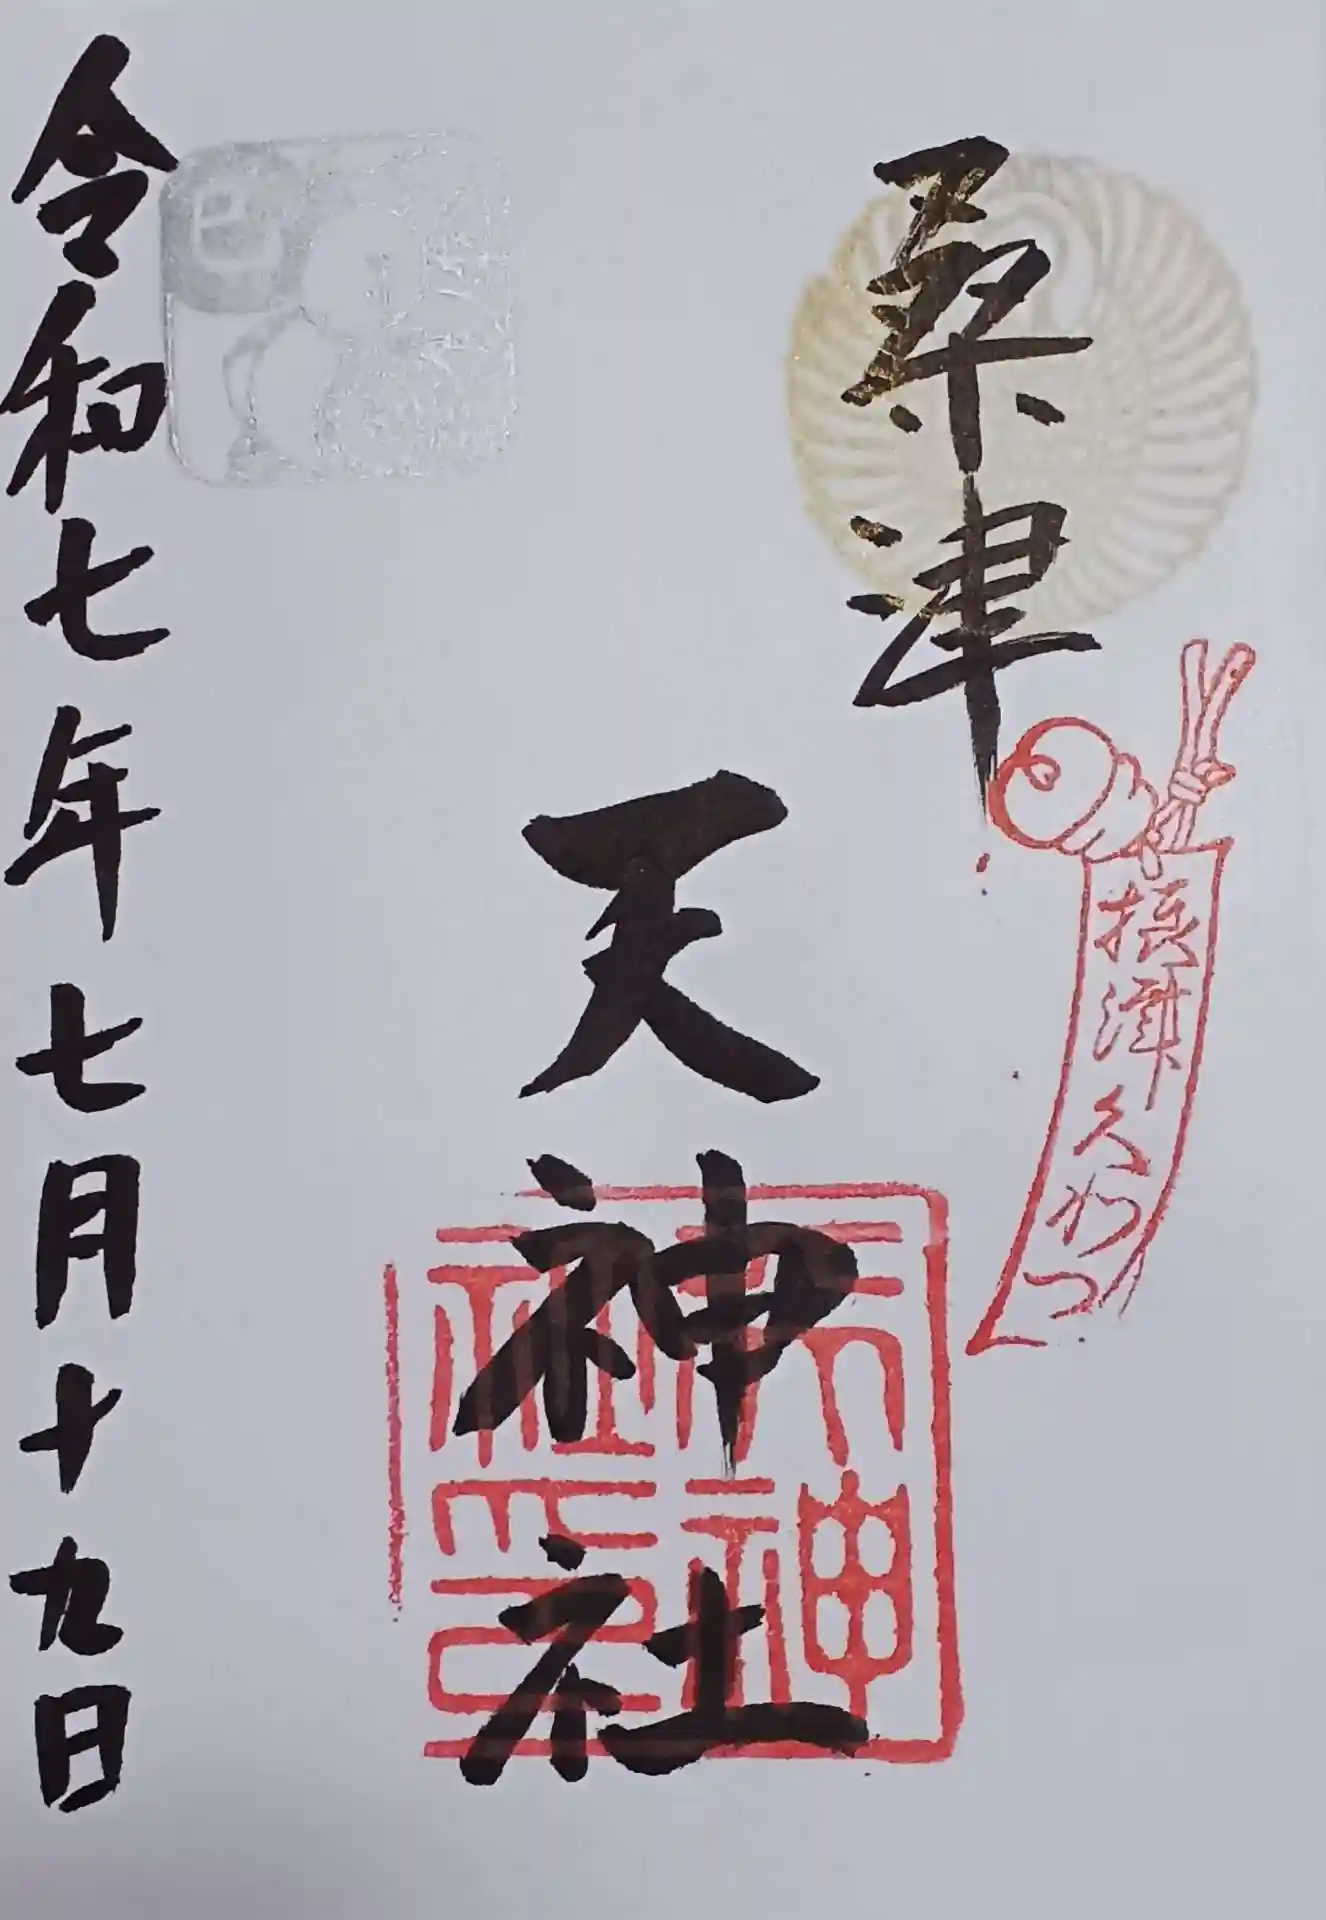 桑津
摂津久わつ
天神社
天神
社印
令和七年七月十九日